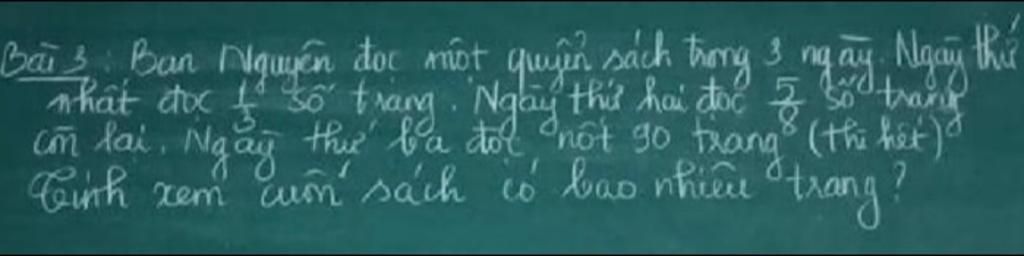 Bài 3: Bạn Nguyên đọc một quyển sách trong 3 ngày. Ngày thứ
nhất đọc 1/3 số trang. Ngày thứ hai đọc 5/8 số trang
còn lại. Ngày thứ ba đọc nốt 90 trang (thì hết)
Tính xem cuốn sách có bao nhiêu trang?